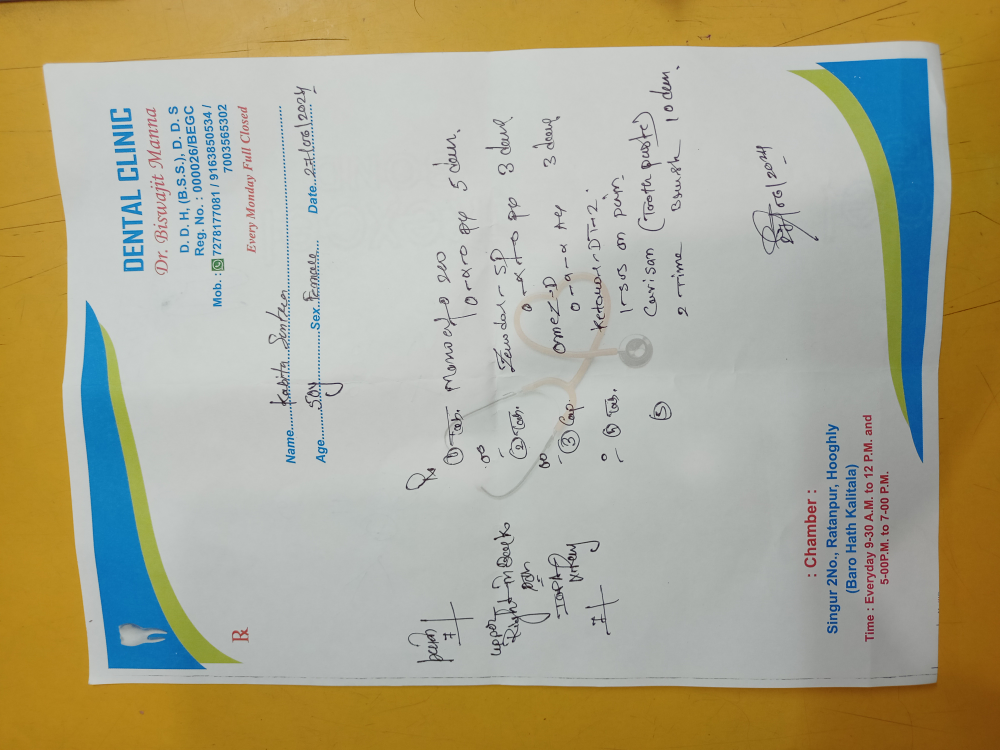 DENTAL CLINIC
Dr. Biswajit Manna
D. D. H, (B.S.S.), D. D. S
Reg. No. : 000026/BEGC
Mob. : 7278177081 / 9163850534 /
7003565302
Every Monday Full Closed
Rx
Name.....Kabita
Age.....50y.....Sex..Female.....Date..27/06/2024
pain
7
upper
Right
IOPA
X-Ray
7
Rx
① Tab. Monocef-o 200
5
② Tab. Zerodol-SP
3 days
③ Cap. Omez-D
3 days
④ Tab. Ketorol-DT-2.
1 SOS on pain.
⑤ (Tooth paste)
2 Time Brush 10
: Chamber :
Singur 2No., Ratanpur, Hooghly
(Baro Hath Kalitala)
Time : Everyday 9-30 A.M. to 12 P.M. and
5-00P.M. to 7-00 P.M.